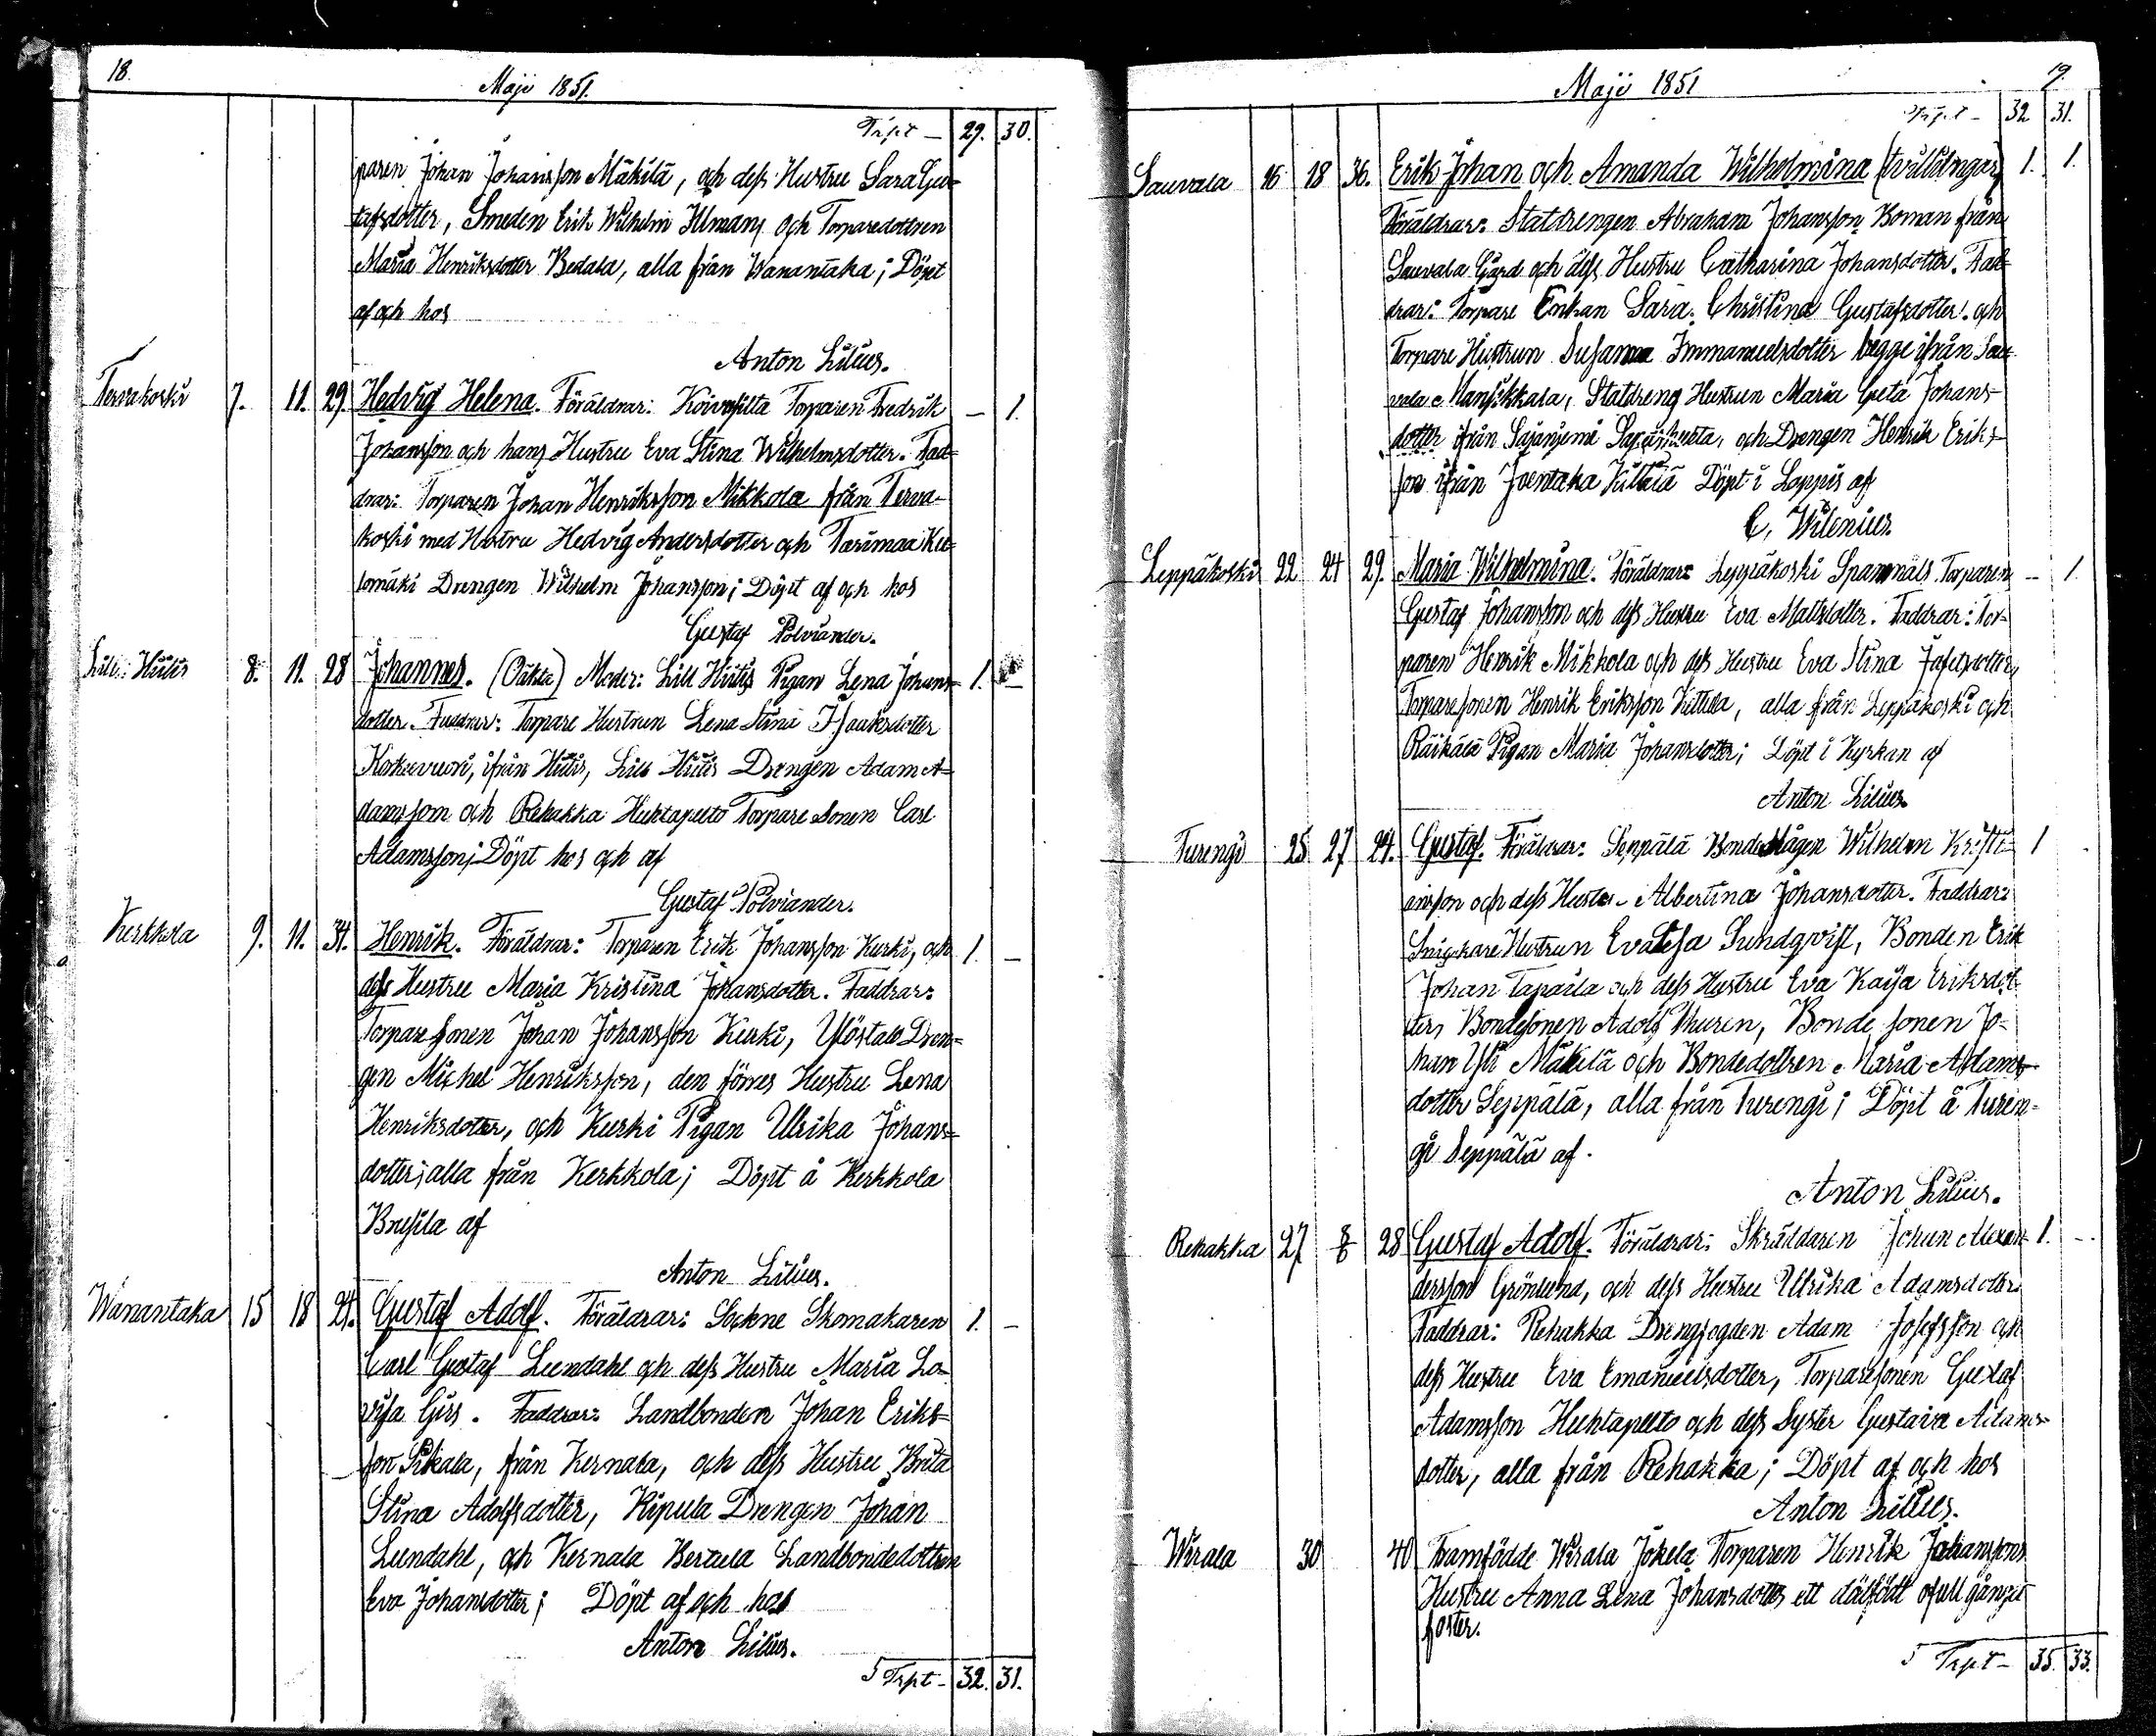 18.
Maji 1851.
Trpt — 29. 30.
paren Johan Johansson Mäkilä, och dess Hustru Sara Gus-
tafsdotter, Smeden Erik Wilhelm Ilman och Torparedottren
Maria Henriksdotter Bedala, alla från Wanantaka; Döpt
af och hos
Anton Lilius.
Tervakoski 7. 11. 29. Hedvig Helena. Föräldrar: Koivusilta Torparen Fredrik — 1.
Johansson och hans Hustru Eva Stina Wilhelmsdotter. Fad-
drar: Torparen Johan Henriksson Mikkola från Terva-
koski med Hustru Hedvig Andersdotter och Tarimaa Ku-
lomäki Drengen Wilhelm Johansson; Döpt af och hos
Gustaf Polviander.
Lill: Hiitis 8. 11. 28 Johannes. (Oäkta) Moder: Lill Hiitis Pigan Lena Johans- 1. —
dotter. Faddrar: Torpare Hustrun Lena Stina Isaaksdotter
Korkeavuori, ifrån Hiitis, Lill Hiitis Drengen Adam A-
damsson och Rehakka Huhtapelto Torpare Sonen Carl
Adamsson; Döpt hos och af
Gustaf Polviander.
Kerkkola 9. 11. 34. Henrik. Föräldrar: Torparen Erik Johansson Kurki, och 1. —
dess Hustru Maria Kristina Johansdotter. Faddrar:
Torpare Sonen Johan Johansson Kurki, Ylöstalo Dren-
gen Michel Henriksson, den förres Hustru Lena
Henriksdotter, och Kurki Pigan Ulrika Johans-
dotter; alla från Kerkkola; Döpt å Kerkkola
Brusila af
Anton Lilius.
Wanantaka 15 18 24. Gustaf Adolf. Föräldrar: Sockne Skomakaren 1. —
Carl Gustaf Lundahl och dess Hustru Maria Lo-
visa Girs. Faddrar: Landbonden Johan Eriks-
son Pikala, från Kernala, och dess Hustru Brita
Stina Adolfsdotter, Kipula Drengen Johan
Lundahl, och Kernala Bertula Landbondedottren
Eva Johansdotter; Döpt af och hos
Anton Lilius.
5 Trpt — 32. 31.
Maji 1851
19.
Trpt — 32 31.
Sauvala 16 18 36. Erik Johan och Amanda Wilhelmina (tvillingar) 1. 1.
Föräldrar: Statdrengen Abraham Johansson Boman från
Sauvala Gård och dess Hustru Catharina Johansdotter. Fad-
drar: Torpare Enkan Sara Christina Gustafsdotter och
Torpare Hustrun Susanna Immanuelsdotter begge ifrån Sau-
vala Mansikkala, Statdreng Hustrun Maria Greta Johans-
dotter ifrån och Drengen Henrik Eriks-
son ifrån Joentaka Kittilä Döpt i Loppis af
C. Wilenius.
Leppäkoski 22 24 29. Maria Wilhelmina. Föräldrar: Leppäkoski Spannäls Torparen — 1.
Gustaf Johansson och dess Hustru Eva Mattsdotter. Faddrar: Tor-
paren Henrik Mikkola och dess Hustru Eva Stina Jafetsdotter,
Torparesonen Henrik Eriksson Kittilä, alla från Leppäkoski och
Räikälä Pigan Maria Johansdotter; Döpt i Kyrkan af
Anton Lilius.
Turengi 25 27 24. Gustaf. Föräldrar: Seppälä Bondemågen Wilhelm Kristi- 1
ansson och dess Hustru Albertina Johansdotter. Faddrar:
Snickare Hustrun Eva Lisa Sundqvist, Bonden Erik
Johan Tapaila och dess Hustru Eva Kaija Eriksdot-
ter, Bondesonen Adolf Thuren, Bonde sonen Jo-
han Yli Mäkilä och Bondedottren Maria Adams-
dotter Seppälä, alla från Turengi; Döpt å Turen-
gi Seppälä af.
Anton Lilius.
Rehakka 27 8/6 28 Gustaf Adolf. Föräldrar: Skräddaren Johan Alexan- 1. —
dersson Grönlund, och dess Hustru Ulrika Adamsdotter.
Faddrar: Rehakka Drengfogden Adam Josefsson och
dess Hustru Eva Emanuelsdotter, Torparesonen Gustaf
Adamsson Huhtapelto och dess Syster Gustava Adams-
dotter, alla från Rehakka; Döpt af och hos
Anton Lilius.
Wirala 30 40 Framfödde Wirala Jokela Torparen Henrik Johanssons
Hustru Anna Lena Johansdotter ett dödfödt ofullgånget
foster.
5 Trpt — 35. 33.